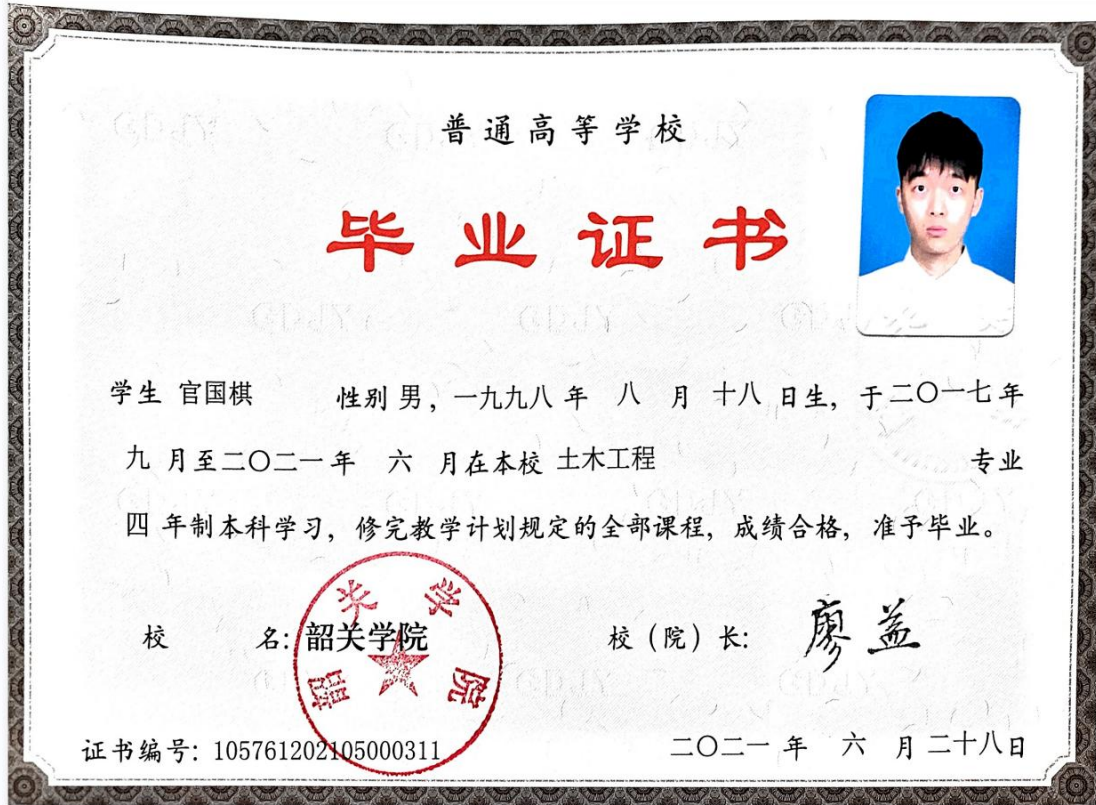 普通高等学校
毕业证书
学生 官国棋 性别 男，一九九八 年 八 月 十八 日生，于二〇一七年
九 月至二〇二一年 六 月在本校 土木工程 专业
四 年制本科学习，修完教学计划规定的全部课程，成绩合格，准予毕业。
校 名：韶关学院 校（院）长：廖益
韶关学院
证书编号：105761202105000311 二〇二一 年 六 月二十八日